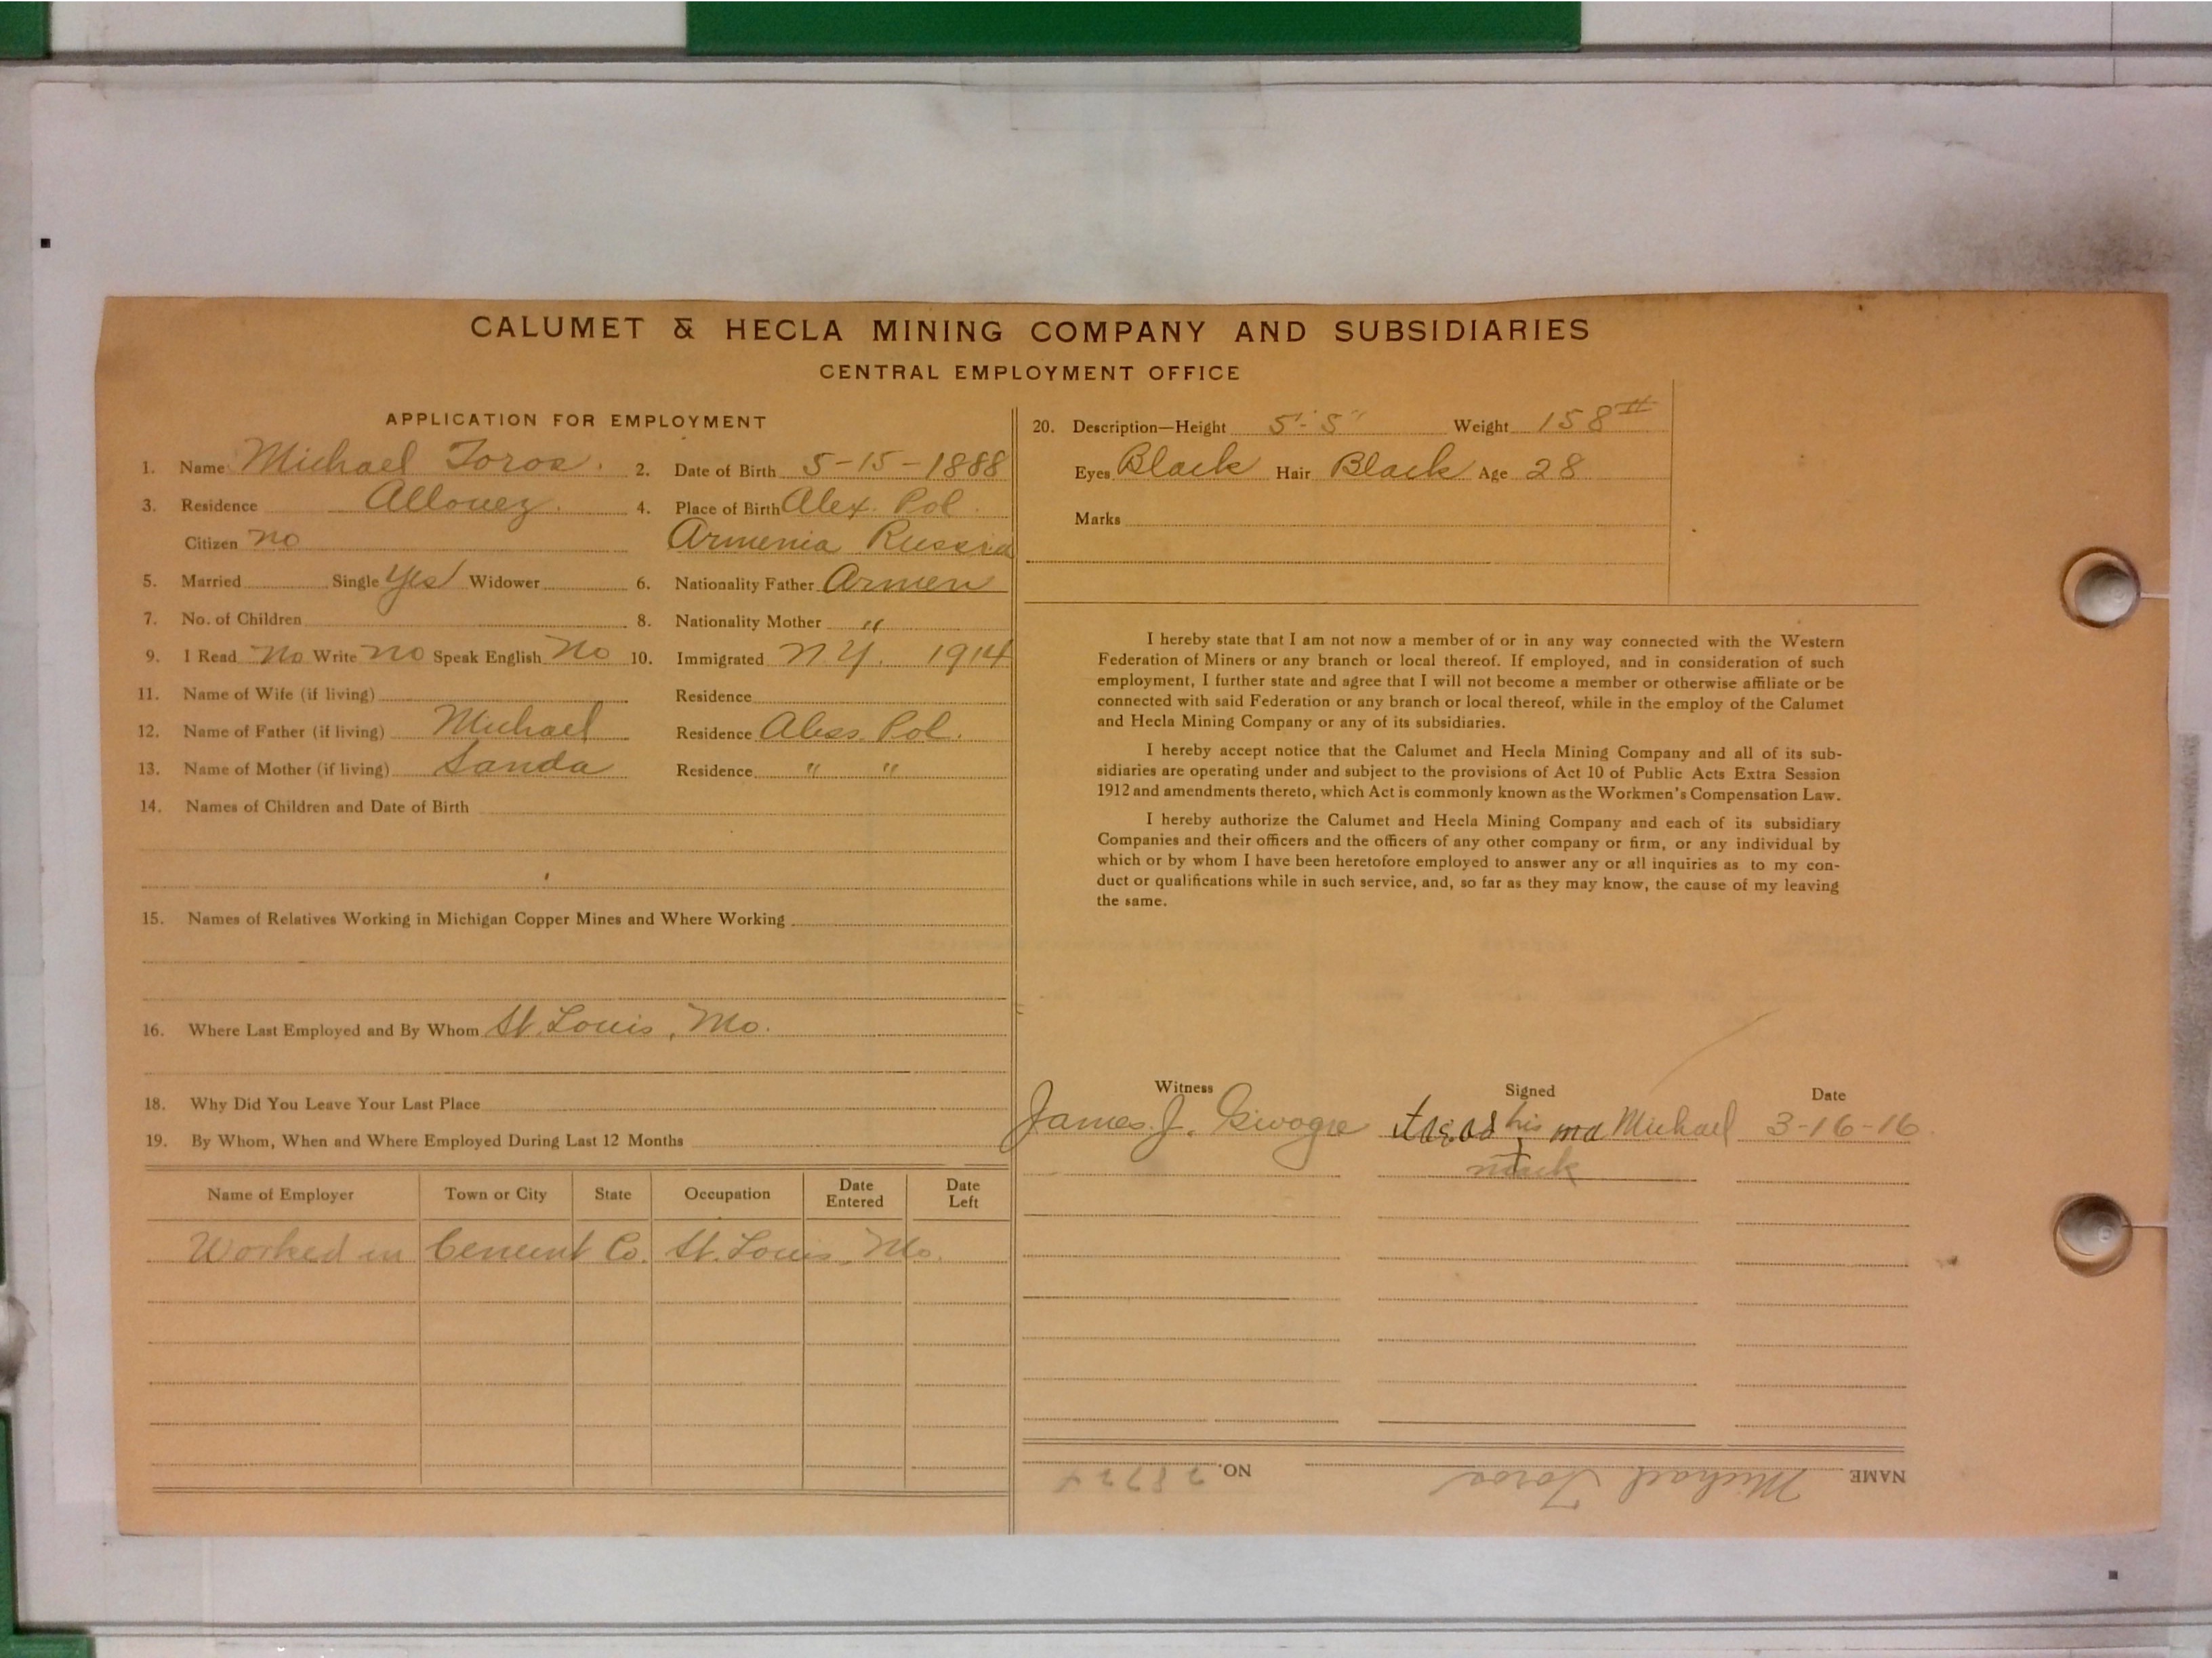 CALUMET & HECLA MINING COMPANY AND SUBSIDIARIES
CENTRAL EMPLOYMENT OFFICE
APPLICATION FOR EMPLOYMENT
1. Name Michael Toros. 2. Date of Birth 5-15-1888
3. Residence Allouez. 4. Place of Birth Alex. Pol.
Citizen no Armenia Russia
5. Married Single Yes Widower 6. Nationality Father Armen
7. No. of Children 8. Nationality Mother "
9. I Read No Write no Speak English No 10. Immigrated N.Y. 1914
11. Name of Wife (if living) Residence
12. Name of Father (if living) Michael Residence Aless. Pol.
13. Name of Mother (if living) Sanda Residence " "
14. Names of Children and Date of Birth
15. Names of Relatives Working in Michigan Copper Mines and Where Working
16. Where Last Employed and By Whom St. Louis, Mo.
18. Why Did You Leave Your Last Place
19. By Whom, When and Where Employed During Last 12 Months
Name of Employer Town or City State Occupation Date Entered Date Left
Worked in Cement Co. St. Louis, Mo.
20. Description—Height 5'-5" Weight 158#
Eyes Black Hair Black Age 28
Marks
I hereby state that I am not now a member of or in any way connected with the Western
Federation of Miners or any branch or local thereof. If employed, and in consideration of such
employment, I further state and agree that I will not become a member or otherwise affiliate or be
connected with said Federation or any branch or local thereof, while in the employ of the Calumet
and Hecla Mining Company or any of its subsidiaries.
I hereby accept notice that the Calumet and Hecla Mining Company and all of its sub-
sidiaries are operating under and subject to the provisions of Act 10 of Public Acts Extra Session
1912 and amendments thereto, which Act is commonly known as the Workmen's Compensation Law.
I hereby authorize the Calumet and Hecla Mining Company and each of its subsidiary
Companies and their officers and the officers of any other company or firm, or any individual by
which or by whom I have been heretofore employed to answer any or all inquiries as to my con-
duct or qualifications while in such service, and, so far as they may know, the cause of my leaving
the same.
Witness Signed Date
James J. his Michael 3-16-16
mark
NAME Michael Toros NO.